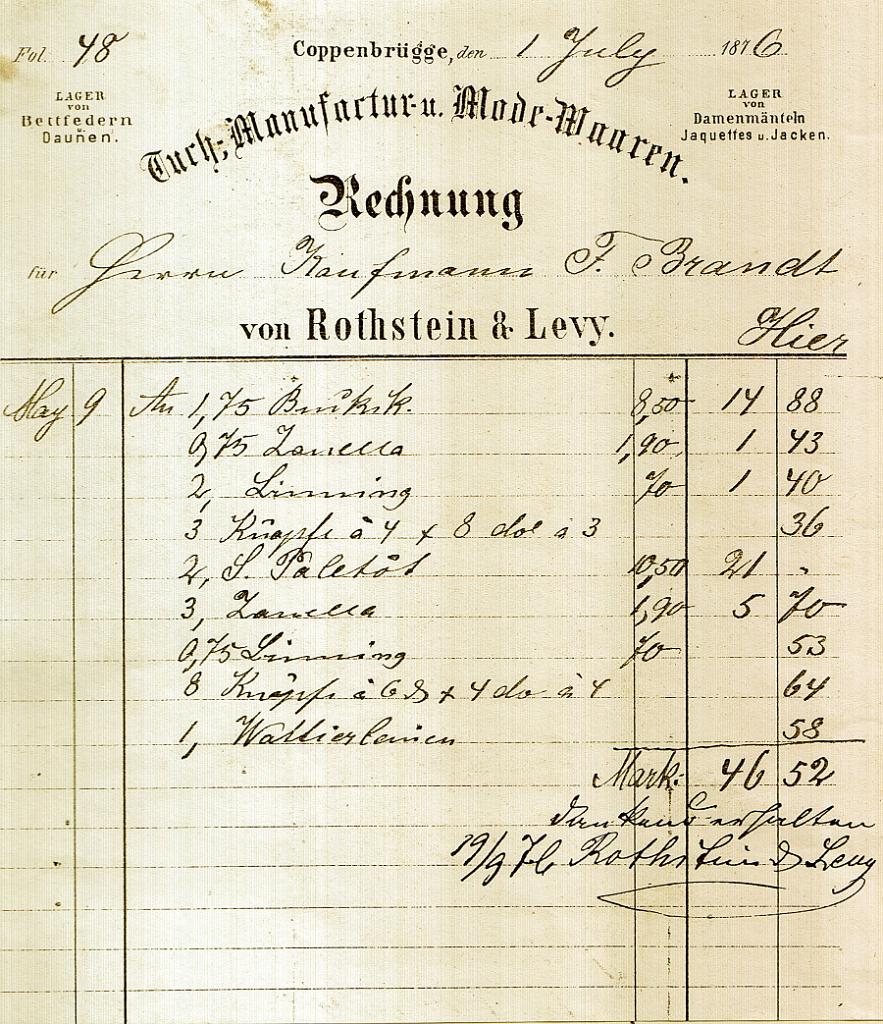 Fol. 48
Coppenbrügge, den 1 July 1876
LAGER
von
Bettfedern
Daunen.
LAGER
von
Damenmänteln
Jaquettes u. Jacken.
Tuch-, Manufactur- u. Mode-Waaren.
Rechnung
für Herrn Kaufmann F. Brandt
von Rothstein & Levy. Hier
May 9 An 1,75 Bucksk. 8,50 14 88
0,75 Zanella 1,90 1 43
2, Linning 70 1 40
3 Knöpfe à 4 + 8 do à 3 36
2, S. Paletôt 10,50 21 "
3, Zanella 1,90 5 70
0,75 Linning 70 53
8 Knöpfe à 6 + 4 do à 4 64
1, Wattierleinen 58
Mark: 46 52
dankend erhalten
19/9 76 Rothstein & Levy